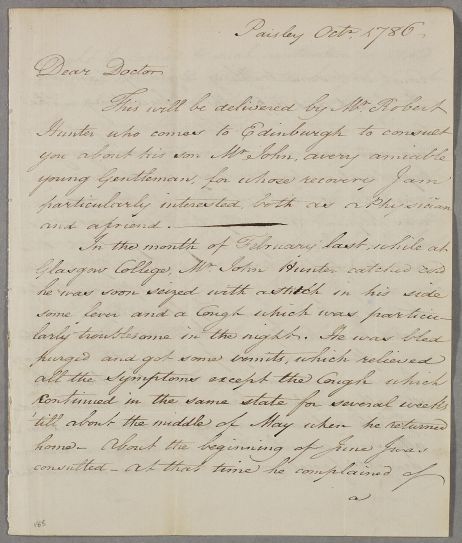 Paisley Octr. 1786.
Dear Doctor
This will be delivered by Mr. Robert
Hunter who comes to Edinburgh to consult
you about his son Mr. John, a very amiable
young Gentleman, for whose recovery I am
particularly interested, both as a Physician
and a friend.
In the month of February last, while at
Glasgow College, Mr. John Hunter catched cold
he was soon seized with a stitch in his side
some fever and a Cough which was particu-
larly troublesome in the night. He was bled
purged and got some vomits, which relieved
all the symptoms except the Cough which
continued in the same state for several weeks
'till about the middle of May when he returned
home - About the beginning of June I was
consulted - At that time he complained of
a